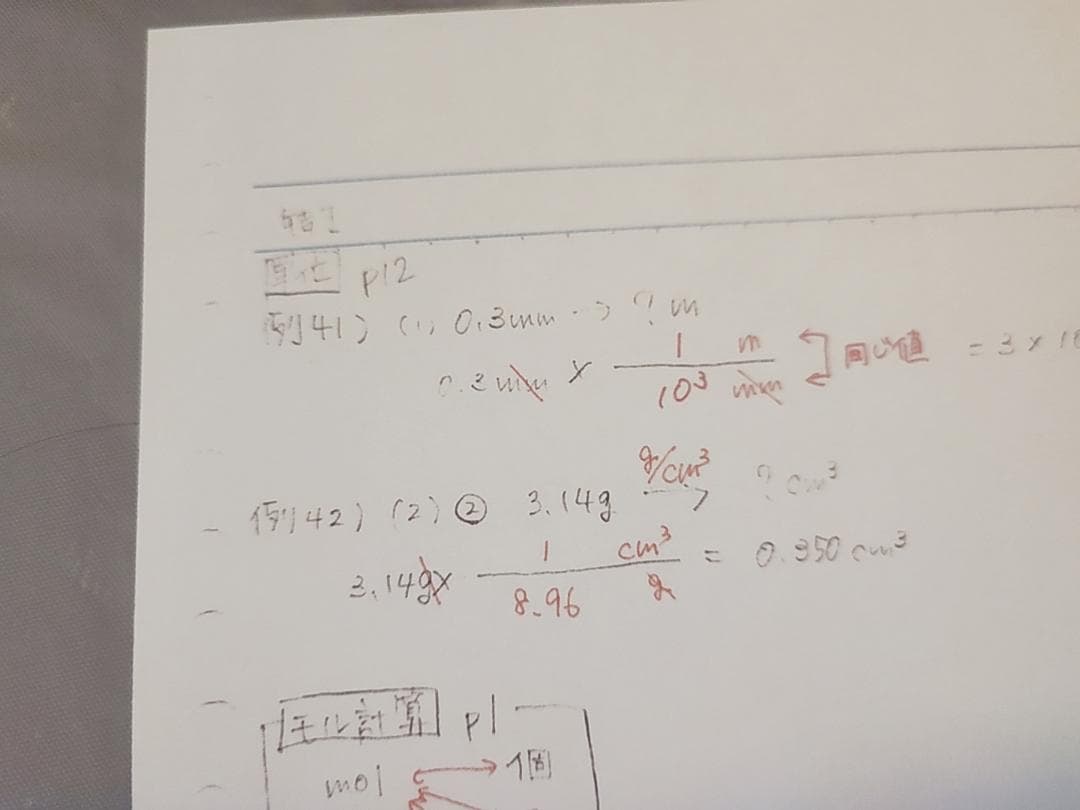 単位 p12
例41) (1) 0.3mm → ? m
0.3mm × 1 m / 10³ mm 同じ値 = 3 × 10
例42) (2) ② 3.14g g/cm³ → ? cm³
3.14g× 1 cm³ / 8.96 g = 0.350 cm³
モル計算 p1
mol 個